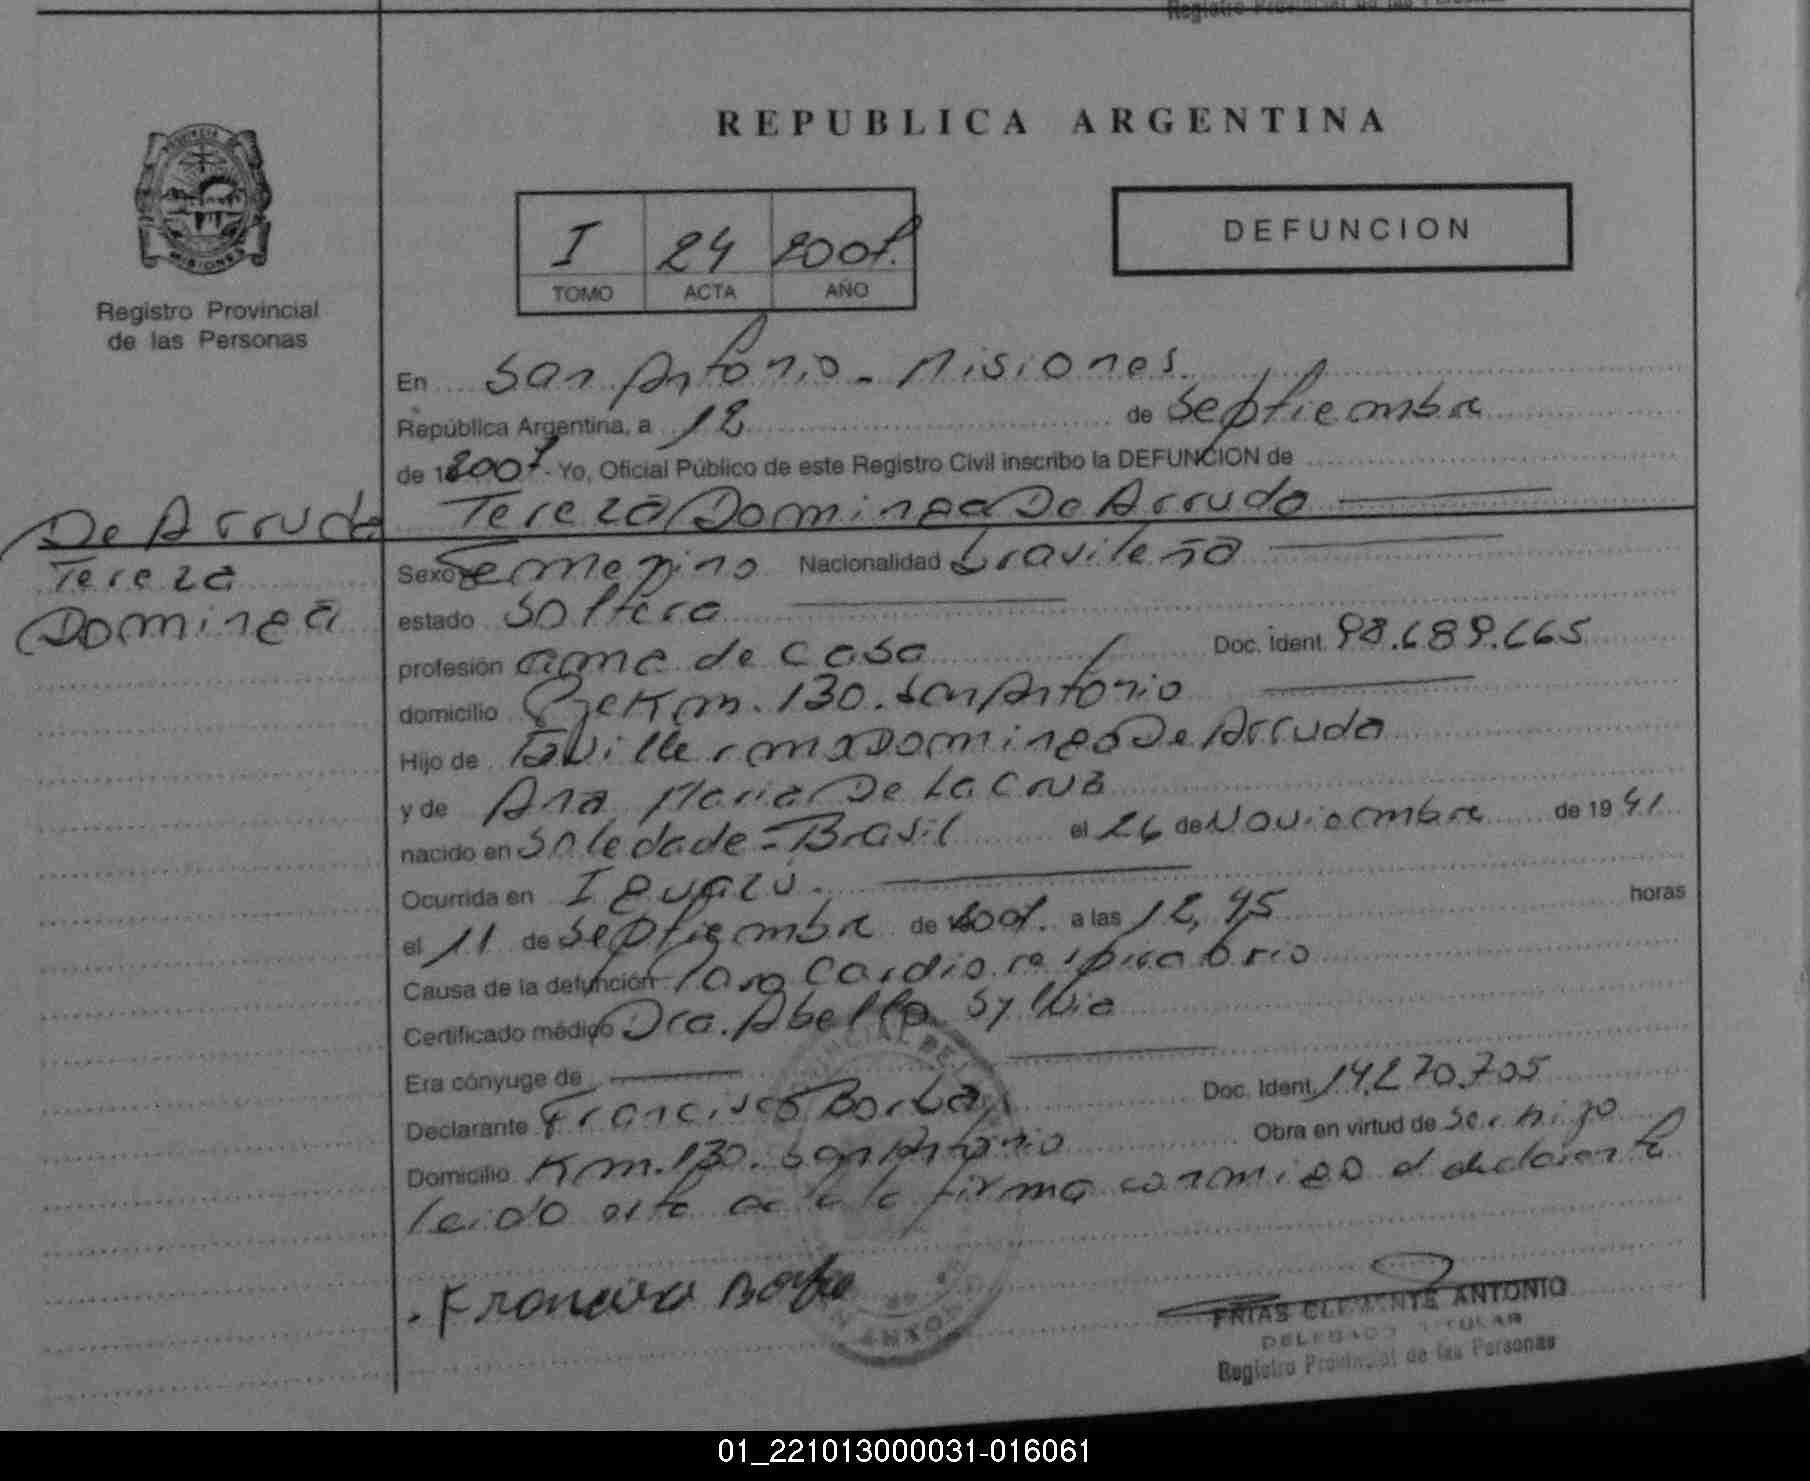 Registro Provincial de las Personas
REPUBLICA ARGENTINA
DEFUNCION
I 24 2001.
TOMO ACTA AÑO
PROVINCIA DE
MISIONES
Registro Provincial
de las Personas
En San Antonio - Misiones
República Argentina, a 12 de Septiembre
de 2001 - Yo, Oficial Público de este Registro Civil inscribo la DEFUNCION de
Tereza Dominga De Arruda
De Arruda
Tereza
Dominga
Sexo Femenino Nacionalidad brasileña
estado Soltera
profesión ama de casa Doc. ident. 98.689.665
domicilio Pje Km. 130. San Antonio
Hijo de Dominga De Arruda
y de Ana Maria De La Cruz
nacido en Soledade - Brasil el 26 de Noviembre de 19 41
Ocurrida en Iguazú.
el 11 de Septiembre de 2001. a las 12,45 horas
Causa de la defunción Paro Cardio respiratorio
Certificado médico Dra. Abello Sylvia
Era cónyuge de
Declarante Francisco Borba Doc. Ident. 14.270.705
Domicilio Km. 130. San Antonio Obra en virtud de Ser hijo
leido esta acta la firma conmigo el declarante
Francisco Borba
FRIAS CLEMENTE ANTONIO
DELEGADO TITULAR
Registro Provincial de las Personas
01_221013000031-016061